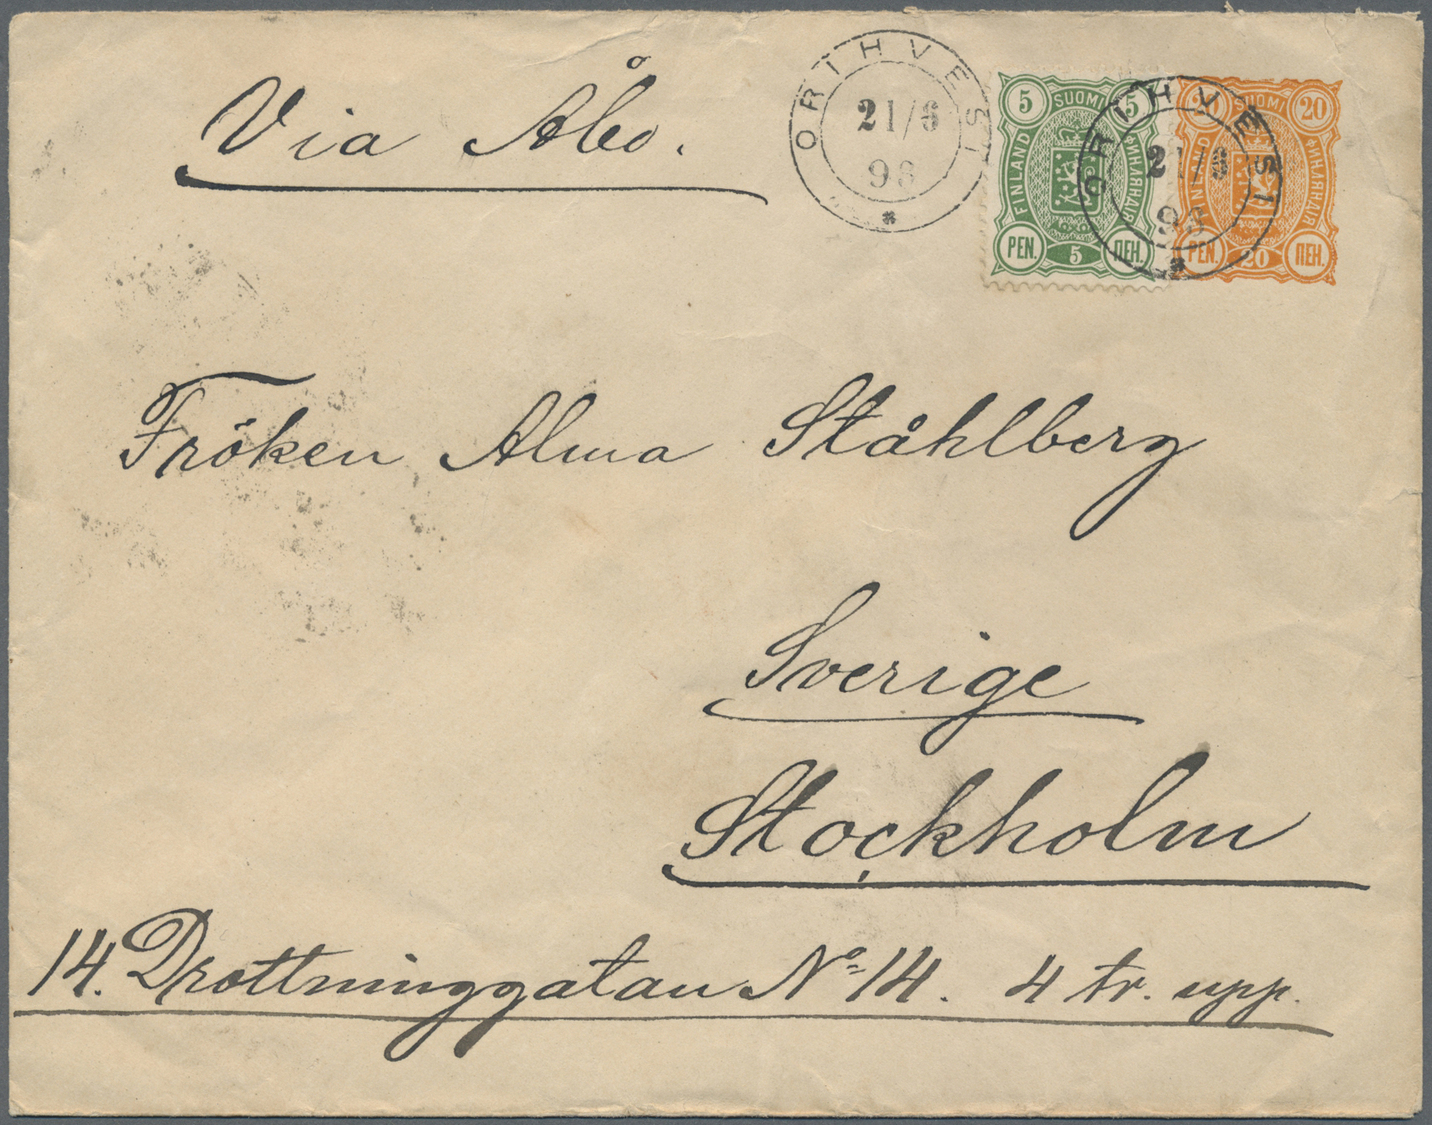 Via Åbo.
ORIHVESI
21/6
93
5 SUOMI 5
FINLAND
ФИНЛЯНДІЯ
PEN. 5 ПЕН.
ORIHVESI
21/6
93
20 SUOMI 20
FINLAND
ФИНЛЯНДІЯ
PEN. 20 ПЕН.
Fröken Alma Ståhlberg
Sverige
Stockholm
14. Drottninggatan No 14. 4 tr. upp.